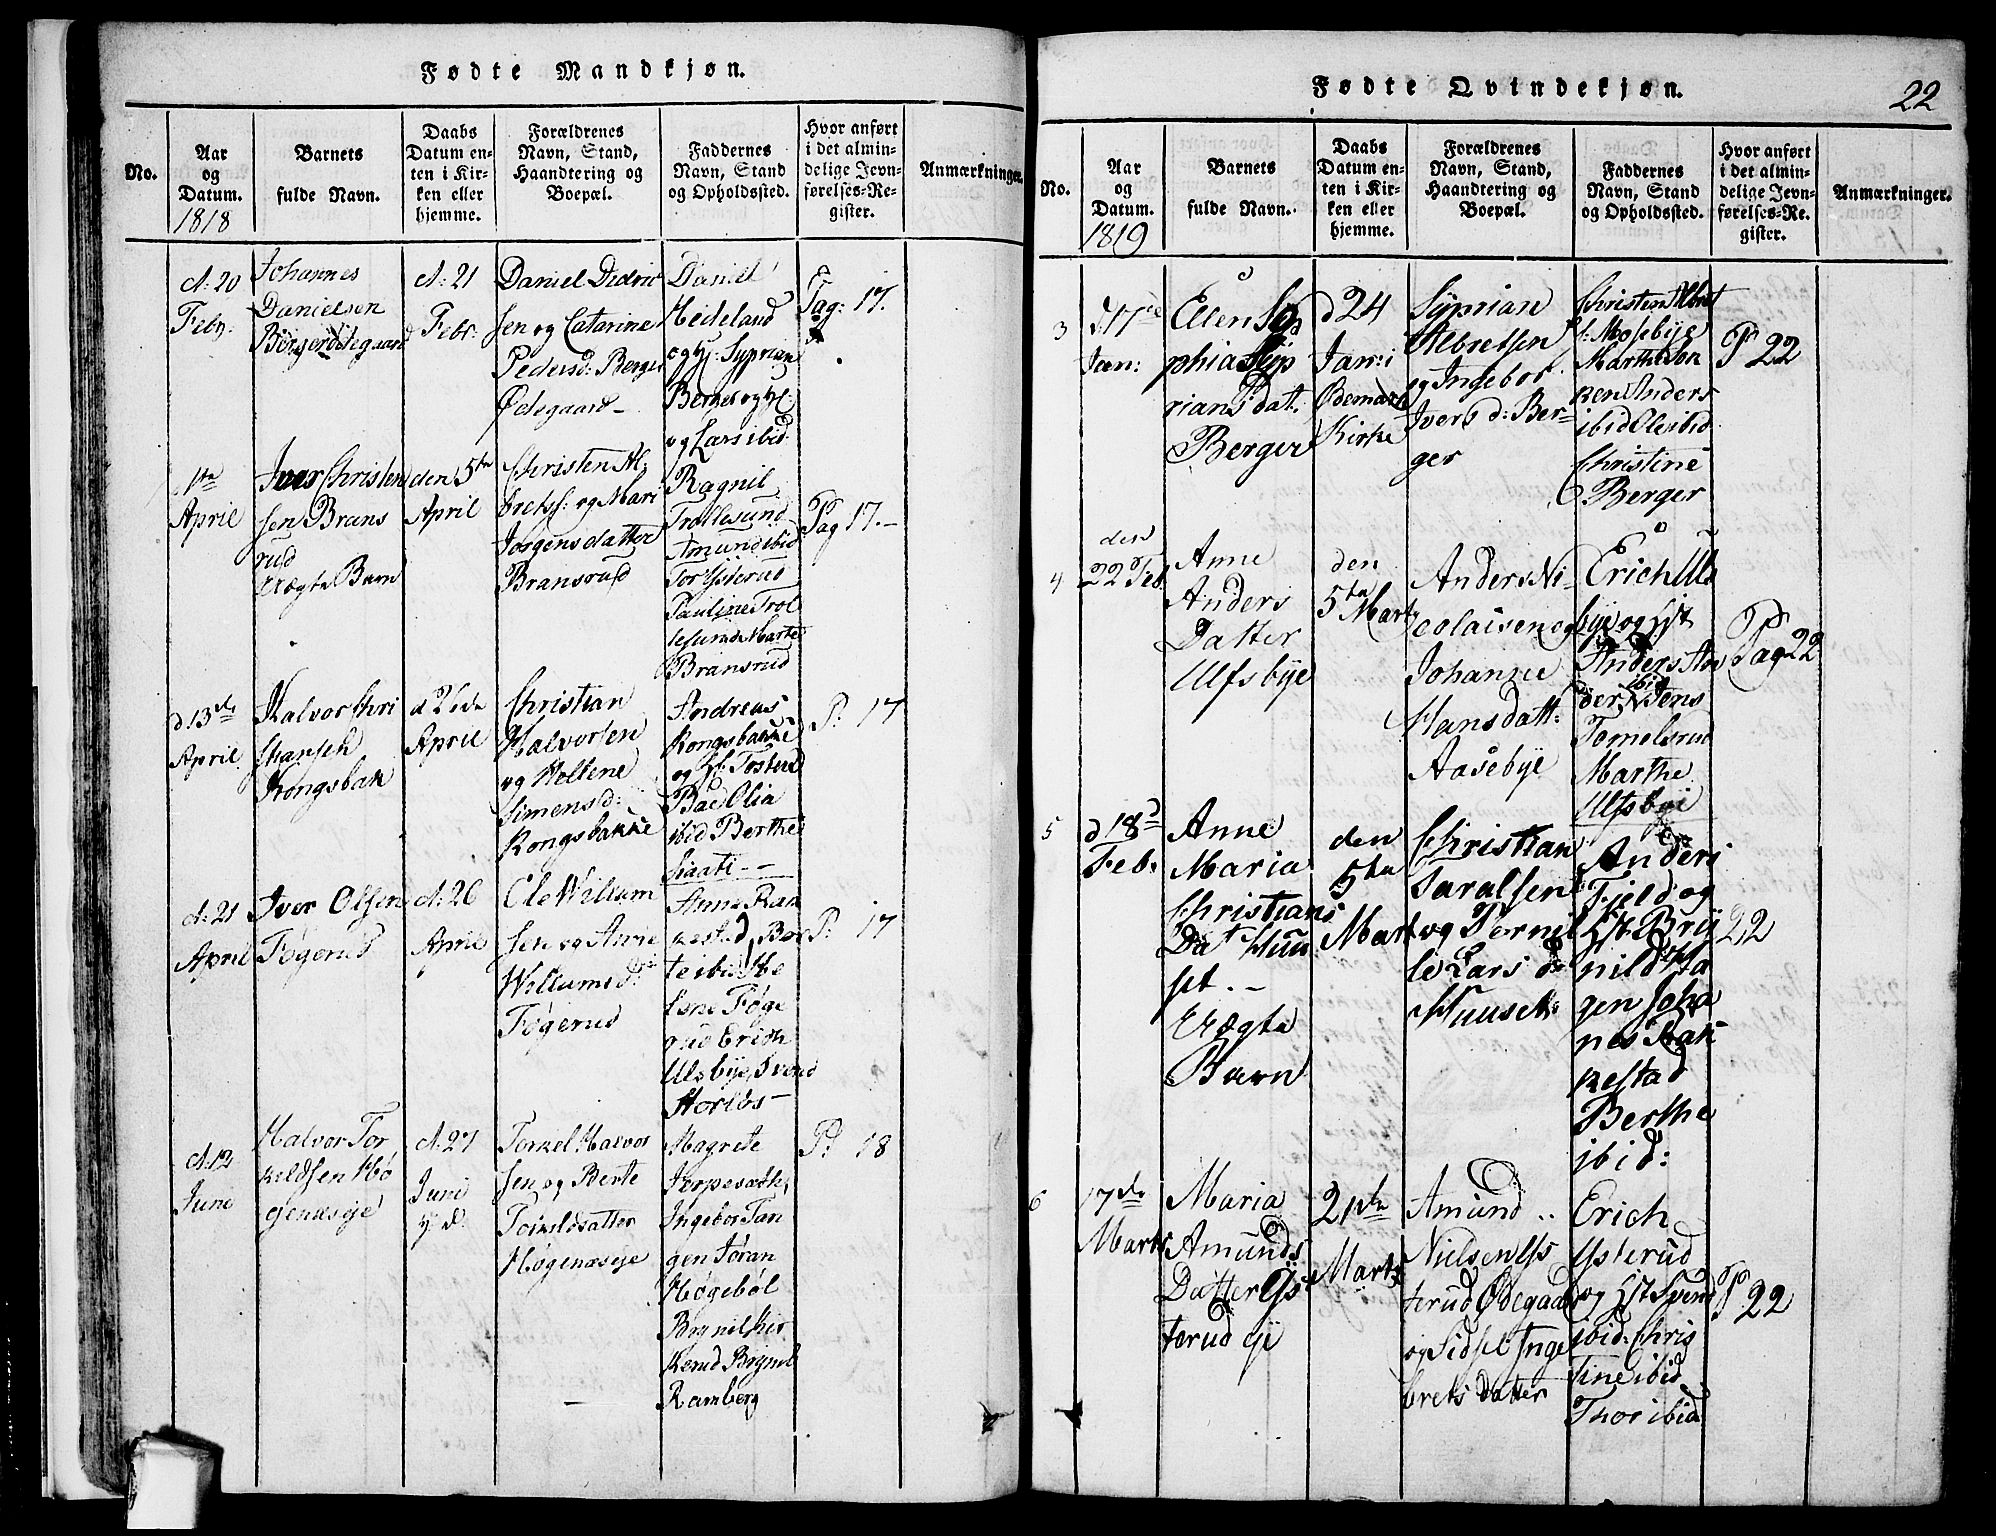 Fødte Mandkjøn.
No.
Aar
og
Datum.
1818
Barnets
fulde Navn.
Daabs
Datum en-
ten i Kir-
ken eller
hjemme.
Forældrenes
Navn, Stand,
Haandtering og
Boepæl.
Faddernes
Navn, Stand
og Opholdssted.
Hvor anført
i det almin-
delige Jevn-
førelses-Re-
gister.
Anmærkninger.
d: 20
Feby:
Johannes
Danielsen
Bergerødegaard
d: 21
Febr:
Daniel Didric
sen og Catarine
Pedersd: Berger
Ødegaard
Daniel
Hedeland
og H: Syprian
Berger og H:
og Lars ibid.
Pag: 17.
1te
April
Iver Christen
sen Brans
rud
Uægte Barn
den 5te
April
Christen Al
bretss: og Mari
Jorgensdatter
Bransrud
Ragnil
Trollesund
Amund ibid
Tor Ysterud
Pauline Trol
lesund Marte
Bransrud
Pag 17.-
d 13de
April
Halvor Chri
stiansen
Kongsbak
d 26de
April
Christian
Halvorsen
og Heltene
Simensd:
Kongsbakke
Andreas
Kongsbakke
og H: Tosten
Bae Olia
ibid Berthe
Staati
P: 17
d: 21
April
Iver Olsen
Føgerud
d: 26
April
Ole Willum
sen og Anne
Willumsd:
Føgerud
Anne Ran
kestad, Ber
te ibid He
lene Føge
rud Erich
Ulsbye, Svend
Horløs
P: 17
d: 12
June
Halvor Tor
kildsen Hø
genæseje
d: 27
Juni
Torkel Halvor
sen og Berte
Torkildsdatter
Høgenæseje
Magrete
Jerpesæth,
Ingebor Tan
gen Jøran
Høgebøl
Brynil Kir
kerud Brynil
Ramberg
P: 18
Fødte Qvindekjøn.
22
No.
Aar
og
Datum.
1819
Barnets
fulde Navn.
Daabs
Datum en-
ten i Kir-
ken eller
hjemme.
Forældrenes
Navn, Stand,
Haandtering og
Boepæl.
Faddernes
Navn, Stand
og Opholdssted.
Hvor anført
i det almin-
delige Jevn-
førelses-Re-
gister.
Anmærkninger.
3
d 17de
Jan:
Ellen So
phia Syp
rians dat.
Berger
d 24
Jan:i
Ødemark
Kirke
Syprian
Albretsen
og Ingebor
Ivers d: Ber-
ger
Christen Albret
s: Mosebye
Marthe Son
ken Anders
ibid Ole ibid
Christine
Berger
P 22
4
den
22 Feb
Anne
Anders
Datter
Ulfsbye
den
5te Mart
Anders Ni-
colaisen og
Johanne
Hansdatt:
Aasebye
Erich Uls
bye og Hst
Anders An
der ibid Jens
Tomelsrud
Marthe
Ulfsbyei
Pag 22
5
d 18d
Feb:
Anne
Maria
Christians
Dat Huu
set.-
Uægte
Barn
den
5te
Mart
Christian
Taralsen
og Pernil
le Lars d
Huuset
Anders
Fjeld og
Hst Bry
nild Ha
gen Joha
nes Ran
kestad
Berthe
ibid:
22
6
17de
Marts
Maria
Amunds
Datter Ys
terud eje
21de
Marts
Amund
Nielsen Ys
terud Ødegaar
og Sidsel Inge
brets datter
Erich
Ysterud
og Hst Svend
ibid: Chris
tine ibid
Thor ibid
P 22